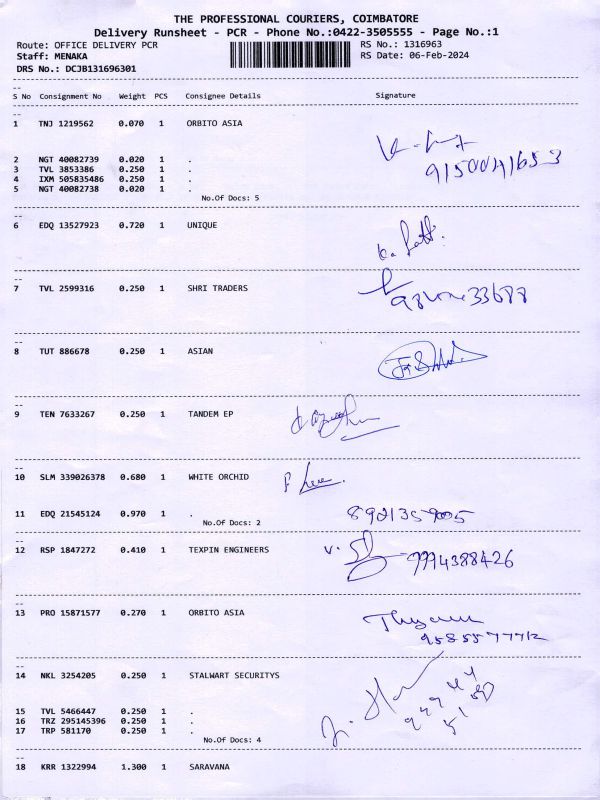 THE PROFESSIONAL COURIERS, COIMBATORE
Delivery Runsheet - PCR - Phone No.:0422-3505555 - Page No.:1
Route: OFFICE DELIVERY PCR RS No.: 1316963
Staff: MENAKA RS Date: 06-Feb-2024
DRS No.: DCJB131696301
S No Consignment No Weight PCS Consignee Details Signature
1 TNJ 1219562 0.070 1 ORBITO ASIA
2 NGT 40082739 0.020 1 .
3 TVL 3853386 0.250 1 .
4 IXM 505835486 0.250 1 .
5 NGT 40082738 0.020 1 .
No.Of Docs: 5
6 EDQ 13527923 0.720 1 UNIQUE
7 TVL 2599316 0.250 1 SHRI TRADERS
8 TUT 886678 0.250 1 ASIAN
9 TEN 7633267 0.250 1 TANDEM EP
10 SLM 339026378 0.680 1 WHITE ORCHID
11 EDQ 21545124 0.970 1 .
No.Of Docs: 2
12 RSP 1847272 0.410 1 TEXPIN ENGINEERS
9994388426
13 PRO 15871577 0.270 1 ORBITO ASIA
14 NKL 3254205 0.250 1 STALWART SECURITYS
15 TVL 5466447 0.250 1 .
16 TRZ 295145396 0.250 1 .
17 TRP 581170 0.250 1 .
No.Of Docs: 4
18 KRR 1322994 1.300 1 SARAVANA